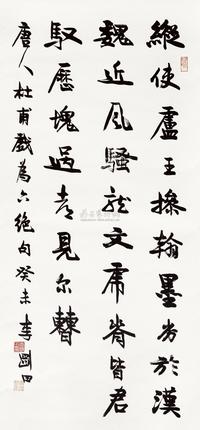 縱使盧王操翰墨劣於漢
魏近風騷龍文虎脊皆君
馭歷塊過都見尔曹
唐人杜甫戲為六絕句癸未李剛田